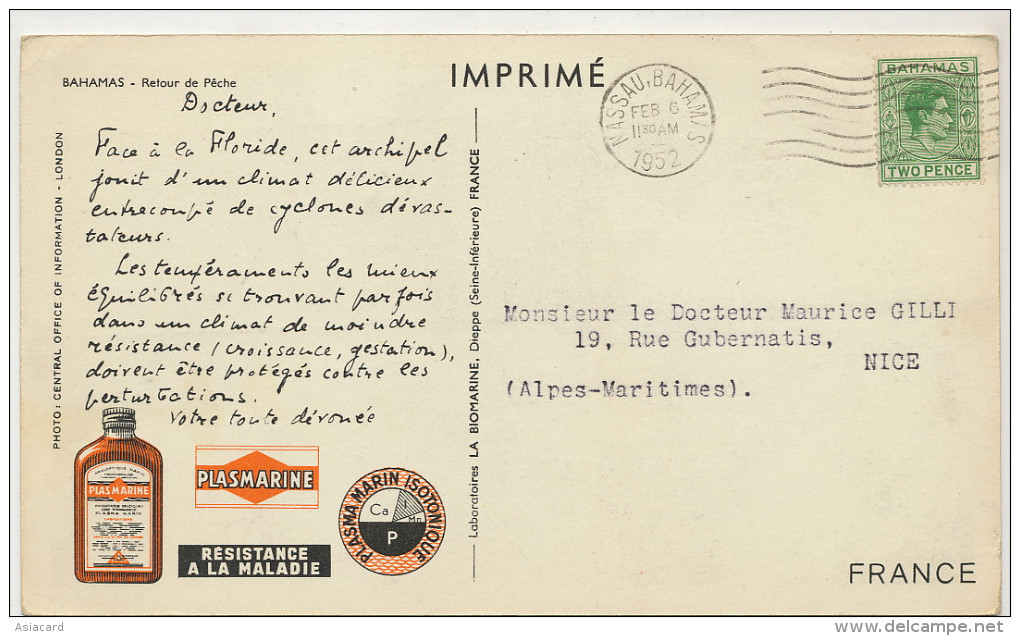 BAHAMAS - Retour de Pêche
IMPRIMÉ
NASSAU, BAHAMAS
FEB 6
11 30 AM
1952
BAHAMAS
TWO PENCE
Docteur,
Face à la Floride, cet archipel
jouit d'un climat délicieux
entrecoupé de cyclones dévas-
tateurs.
Les tempéraments les mieux
équilibrés se trouvant parfois
dans un climat de moindre
résistance (croissance, gestation),
doivent être protégés contre les
perturbations.
Votre toute dévouée
PHOTO: CENTRAL OFFICE OF INFORMATION - LONDON
Laboratoires LA BIOMARINE, Dieppe (Seine-Inférieure) FRANCE
Monsieur le Docteur Maurice GILLI
19, Rue Gubernatis,
NICE
(Alpes-Maritimes).
PLASMARINE
PLASMA MARIN
PLASMARINE
RÉSISTANCE
A LA MALADIE
PLASMA MARIN ISOTONIQUE
Ca
Mn
P
FRANCE
Asiacard
delcampe.net